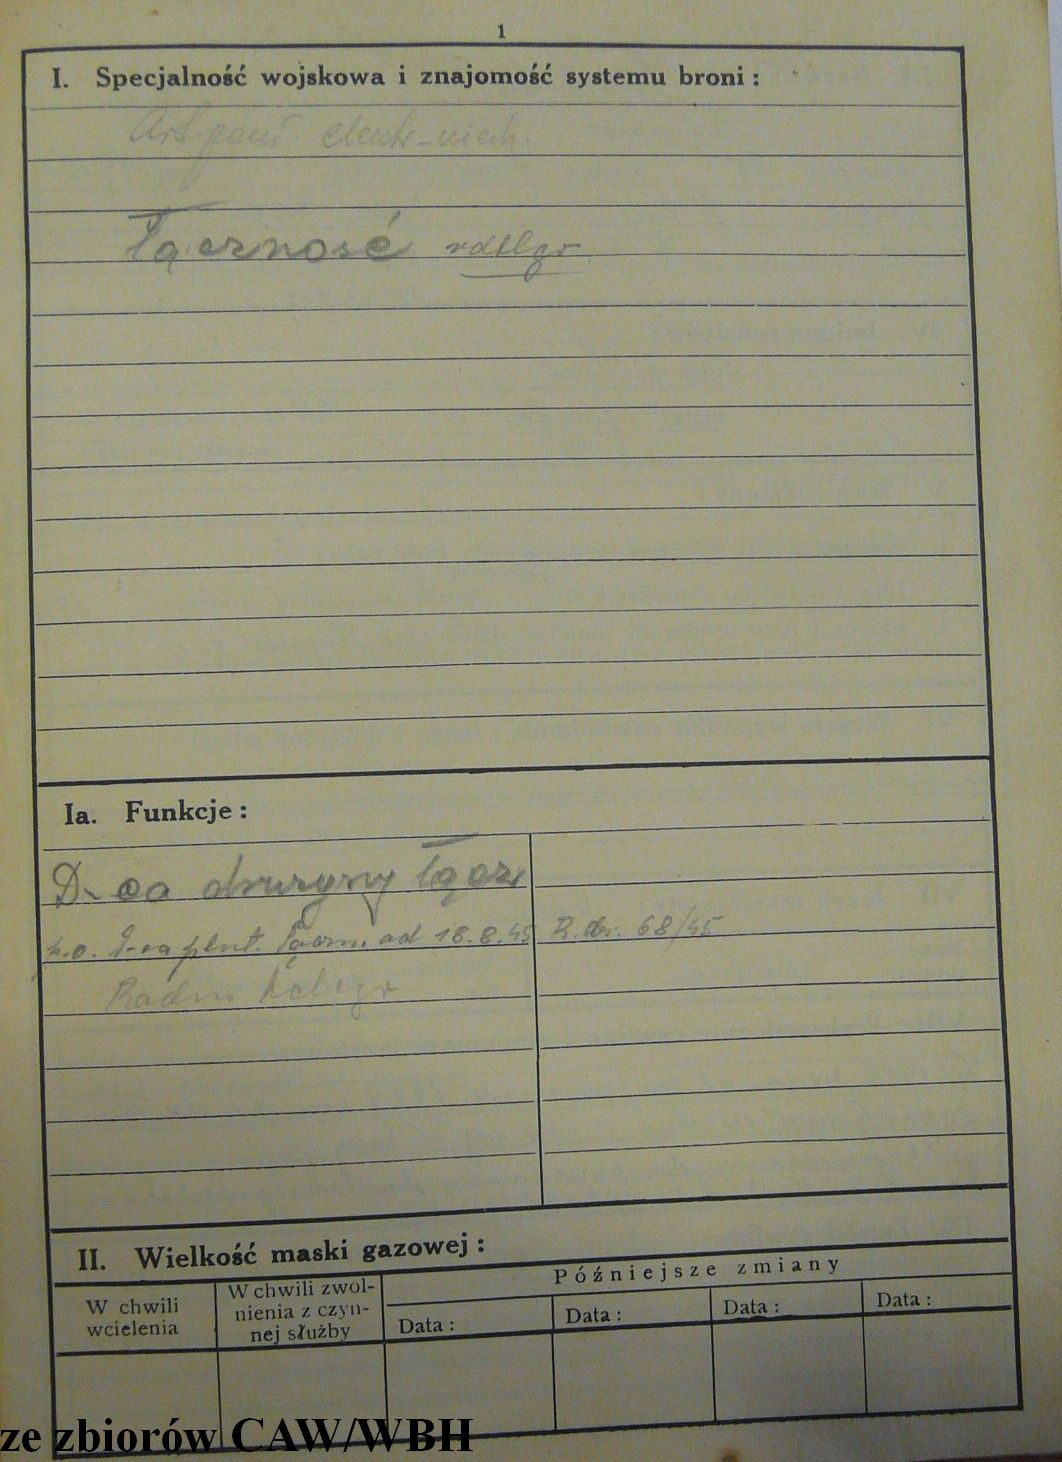 1
I. Specjalność wojskowa i znajomość systemu broni :
Łączność rdtlgr
Ia. Funkcje :
D-ca drużyny łącz.
p.o. D-ca plut. łączn. od 18.8.45 R.dz. 68/45
II. Wielkość maski gazowej :
W chwili wcielenia
W chwili zwol-
nienia z czyn-
nej służby
Późniejsze zmiany
Data :
Data :
Data :
Data :
ze zbiorów CAW/WBH